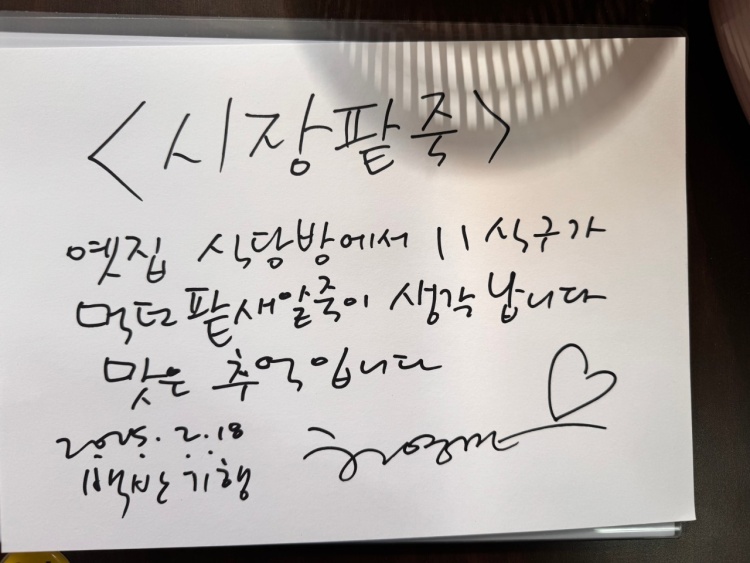 <시장팥죽>
옛집 식당방에서 11 식구가
먹던 팥새알죽이 생각납니다
맛은 추억입니다
2025. 2. 18
백반기행
허영만